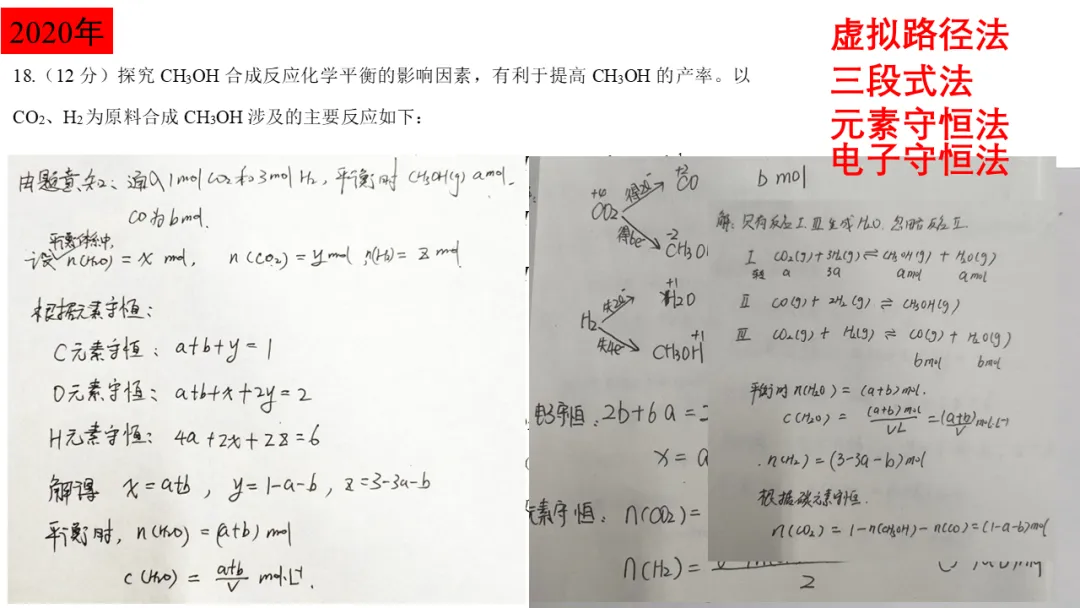 2020年
虚拟路径法
三段式法
元素守恒法
电子守恒法
18.（12 分）探究 CH3OH 合成反应化学平衡的影响因素，有利于提高 CH3OH 的产率。以
CO2、H2为原料合成 CH3OH 涉及的主要反应如下：
由题意知：通入1mol CO2和3mol H2，平衡时 CH3OH(g) a mol.
CO为 b mol.
平衡体系中,
设 n(H2O) = x mol, n(CO2) = y mol n(H2) = z mol
根据元素守恒：
C元素守恒：a+b+y=1
O元素守恒：a+b+x+2y=2
H元素守恒：4a+2x+2z=6
解得 x=a+b, y=1-a-b, z=3-3a-b
平衡时, n(H2O) = (a+b) mol
c(H2O) = a+b/V mol·L-1.
+4 CO2 得2e- +2 CO
得6e- -2 CH3OH
H2 失2e- +1 H2O
失4e- +1 CH3OH
电子守恒：2b+6a=2
x=a
元素守恒：n(CO2)=
n(H2)=
2
b mol
解：只有反应I、III生成H2O，忽略反应II.
I CO2(g)+3H2(g)⇌CH3OH(g)+H2O(g)
a 3a a mol a mol
II CO(g)+2H2(g)⇌CH3OH(g)
III CO2(g)+H2(g)⇌CO(g)+H2O(g)
b mol b mol
平衡时n(H2O)=(a+b)mol.
c(H2O)=(a+b)mol/VL=(a+b)/V mol·L-1
n(H2)=(3-3a-b)mol
根据碳元素守恒.
n(CO2)=1-n(CH3OH)-n(CO)=(1-a-b)mol